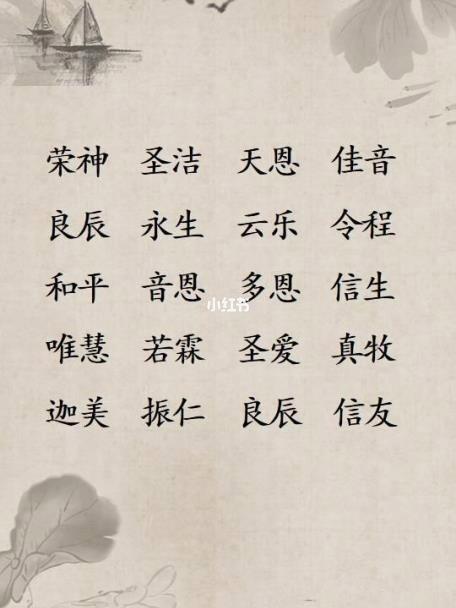 荣神 圣洁 天恩 佳音
良辰 永生 云乐 令程
和平 音恩 多恩 信生
小红书
唯慧 若霖 圣爱 真牧
迦美 振仁 良辰 信友